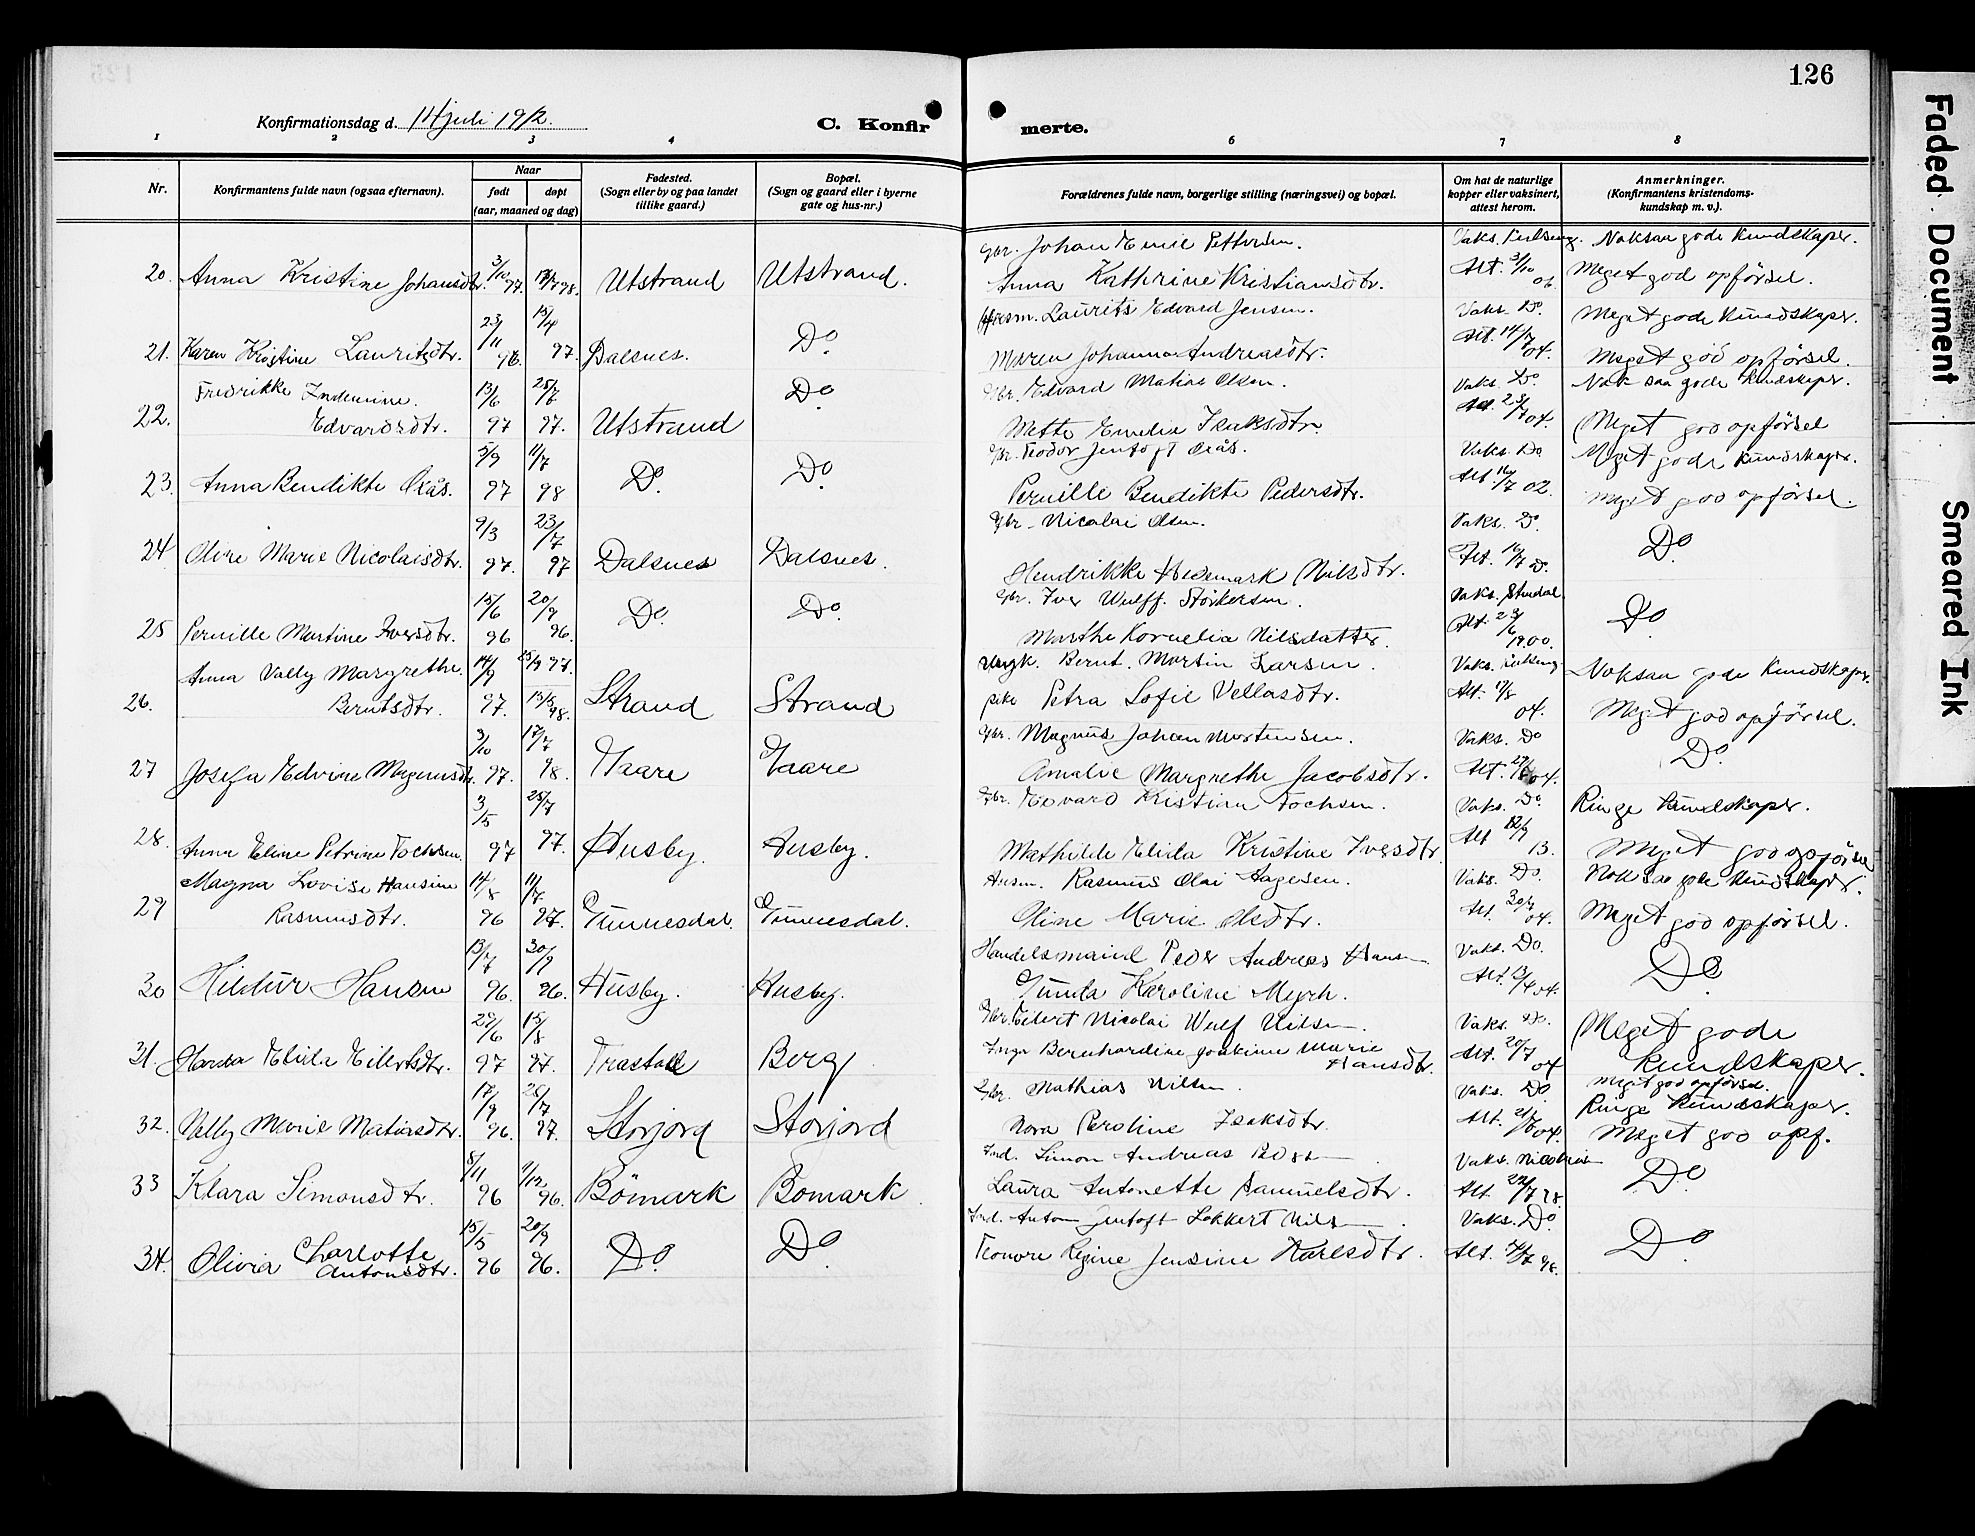 126
Konfirmationsdag d. 14 juli 1912.
C. Konfirmerte.
1 2 3 4 6 7 8
Nr.
Konfirmantens fulde navn (ogsaa efternavn).
Naar
født
døpt
(aar, maaned og dag)
Fødested.
(Sogn eller by og paa landet
tillike gaard.)
Bopæl.
(Sogn og gaard eller i byerne
gate og hus-nr.)
Forældrenes fulde navn, borgerlige stilling (næringsvei) og bopæl.
Om hat de naturlige
kopper eller vaksinert,
attest herom.
Anmerkninger.
(Konfirmantens kristendoms-
kundskap m. v.).
Gbr. Johan Emil Pettersen. Noksaa gode kundskaper.
20. Anna Kristine Johansdtr. 3/10 97. Utstrand Utstrand. Anna Kathrine Kristiansdtr. Att. 3/10 06. Meget god opførsel.
Laurits Edvard Jensen. Vaks. Do Meget gode kundskaper.
21. Karen Kristine Lauritsdtr. 23/11 96. 15/4 97. Dalsnes. Do Maren Johanna Andreasdtr. Att. 14/7 04. Meget god opførsel.
Fredrikke Indianne. Gbr. Edvard Matias Olsen. Vaks. Do. Nok saa gode kundskaper.
22. Edvardsdtr. 13/6 97 25/7 97. Utstrand Do Mette Emelie Isaksdtr. Att. 23/7 04. Meget god opførsel
Gbr. Teodor Jentoft Oxås. Vaks. Do Meget gode kundskaper.
23. Anna Bendikte Oxås. 5/9 97 11/7 98 Do. Do. Pernille Bendikte Pedersdtr. Att. 16/7 02. Meget god opførsel.
Gbr. Nicolai Olsen. Vaks. Do.
24 Olive Marie Nicolaisdtr. 9/3 97. 23/7 97 Dalsnes Dalsnes. Hendrikke Hedemark Nilsdtr. Att. 16/7 Do. Do
Gbr. Iver Wulff. Størkersen. Vaks.
25 Pernille Martine Iversdtr. 15/6 96 20/9 96. Do. Do. Marthe Kornelia Nilsdatter. Att. 23/6 1900. Do
Anna Vally Margrethe Ungk. Bernt. Martin Larsen. Vaks. Noksaa gode kundskaper.
26. Berntsdtr. 14/9 97. 15/5 98. Strand Strand pike Petra Sofie Vellasdtr. Att. 17/8 04. Meget god opførsel.
Gbr. Magnus Johan Mortensen. Vaks. Do
27 Josefa Edvine Magnusdtr. 3/10 97. 17/7 98. Vaare Vaare Amalie Margrethe Jacobsdtr. Att. 04. Do.
Gbr. Edvard Kristian Tochsen. Vaks. Do. Ringe kundskaper.
28. Anna Eline Petrine Tochsen. 3/5 97 25/7 97. Husby. Husby. Mathilde Elida Kristine Iversdtr. Att 12/9 13. Meget god opførsel
Magna Lovise Hansine Husm. Rasmus Olai Aagesen. Vaks. Do. Nok saa gode kundskaper.
29 Rasmusdtr. 14/8 96 97. Tunnesdal. Tunnesdal. Oline Marie Olsdtr. Att. 30/7 04. Meget god opførsel.
Handelsmand Peder Andreas Hansen Vaks. Do.
30 Hildur Hansen 13/7 96. 30/9 96. Husby. Husby. Gunda Karoline Myrh. Att. 13/4 04. Do.
Gbr. Eilert Nicolai Wulf Nilsen. Vaks. Do. Meget gode
31. Harda Elida Eilertsdtr. 29/6 97 15/8 97. Trastad Berg Inga Bernhardine Joakime Marie Hansdtr. Att. 20/7 04 kundskaper.
Meget god opførsel.
Gbr. Mathias Nilsen. Vaks. Do Ringe kundskaper.
32. Vally Marie Matiasdtr. 17/9 96. 26/7 97. Storjord Storjord Nora Peroline Isaksdtr. Att. 21/6 04. Meget god opf.
Ind. Simon Andreas Vaks.
33 Klara Simonsdtr. 8/11 96 1/12 96. Bömark Bomark Laura Antonette Samuelsdtr. Att. 22/7 98. Do
Ind. Anton Jentoft Lokkert Nilsen. Vaks. Do
34. Olivia Charlotte Antonsdtr. 15/5 96 20/9 96. Do. Do Leonore Regine Jensine Karlsdtr. Att. 98. Do
Faded Document
Smeared Ink